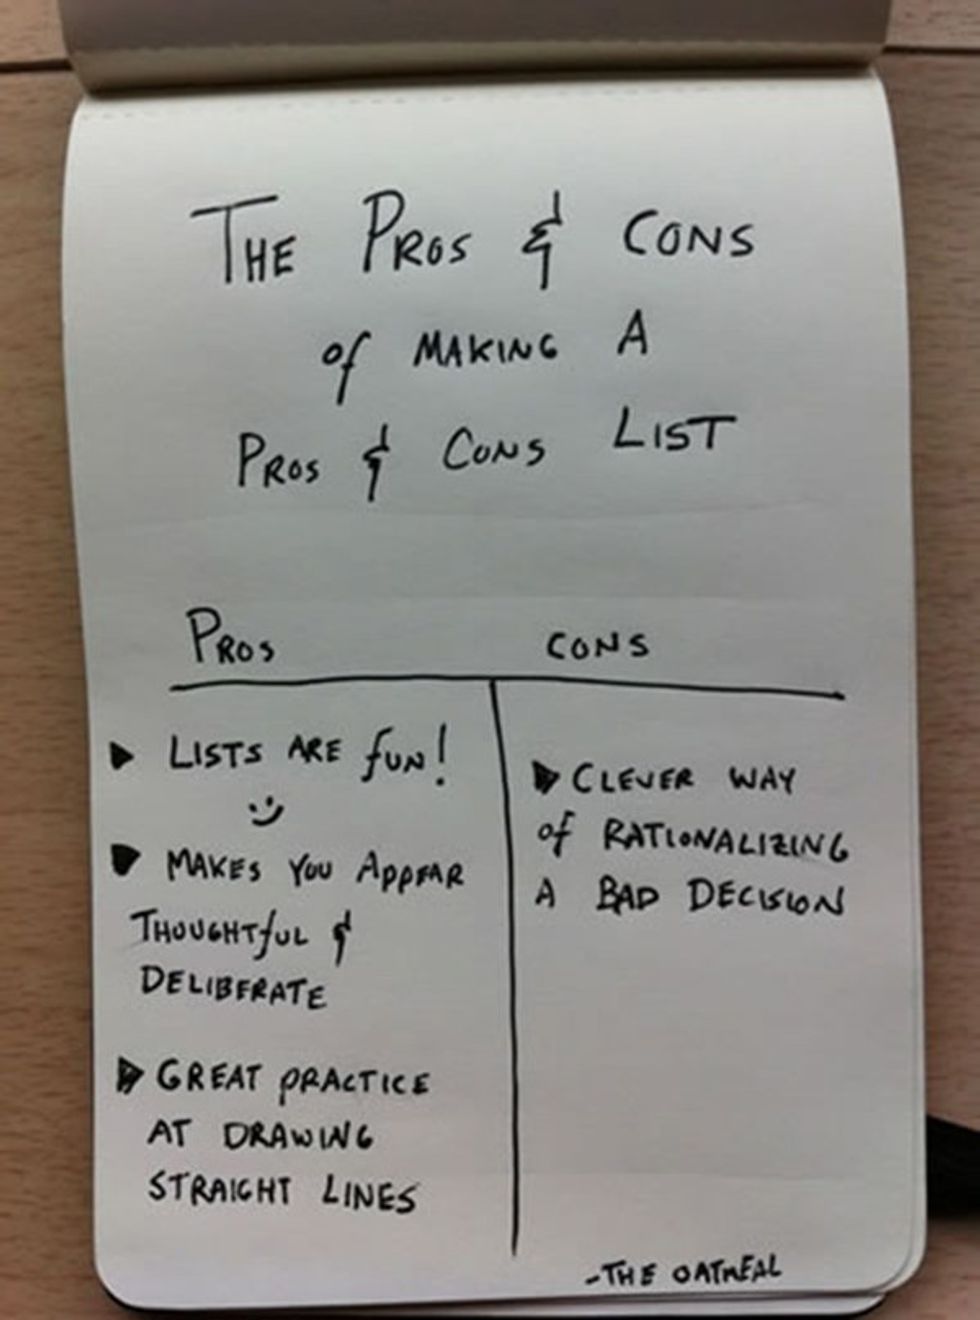 THE PROS & CONS
of MAKING A
PROS & CONS LIST
PROS
LISTS ARE fUN!
MAKES YOU APPEAR
THOUGHTfUL &
DELIBERATE
GREAT PRACTICE
AT DRAWING
STRAIGHT LINES
CONS
CLEVER WAY
of RATIONALIZING
A BAD DECISION
-THE OATMEAL